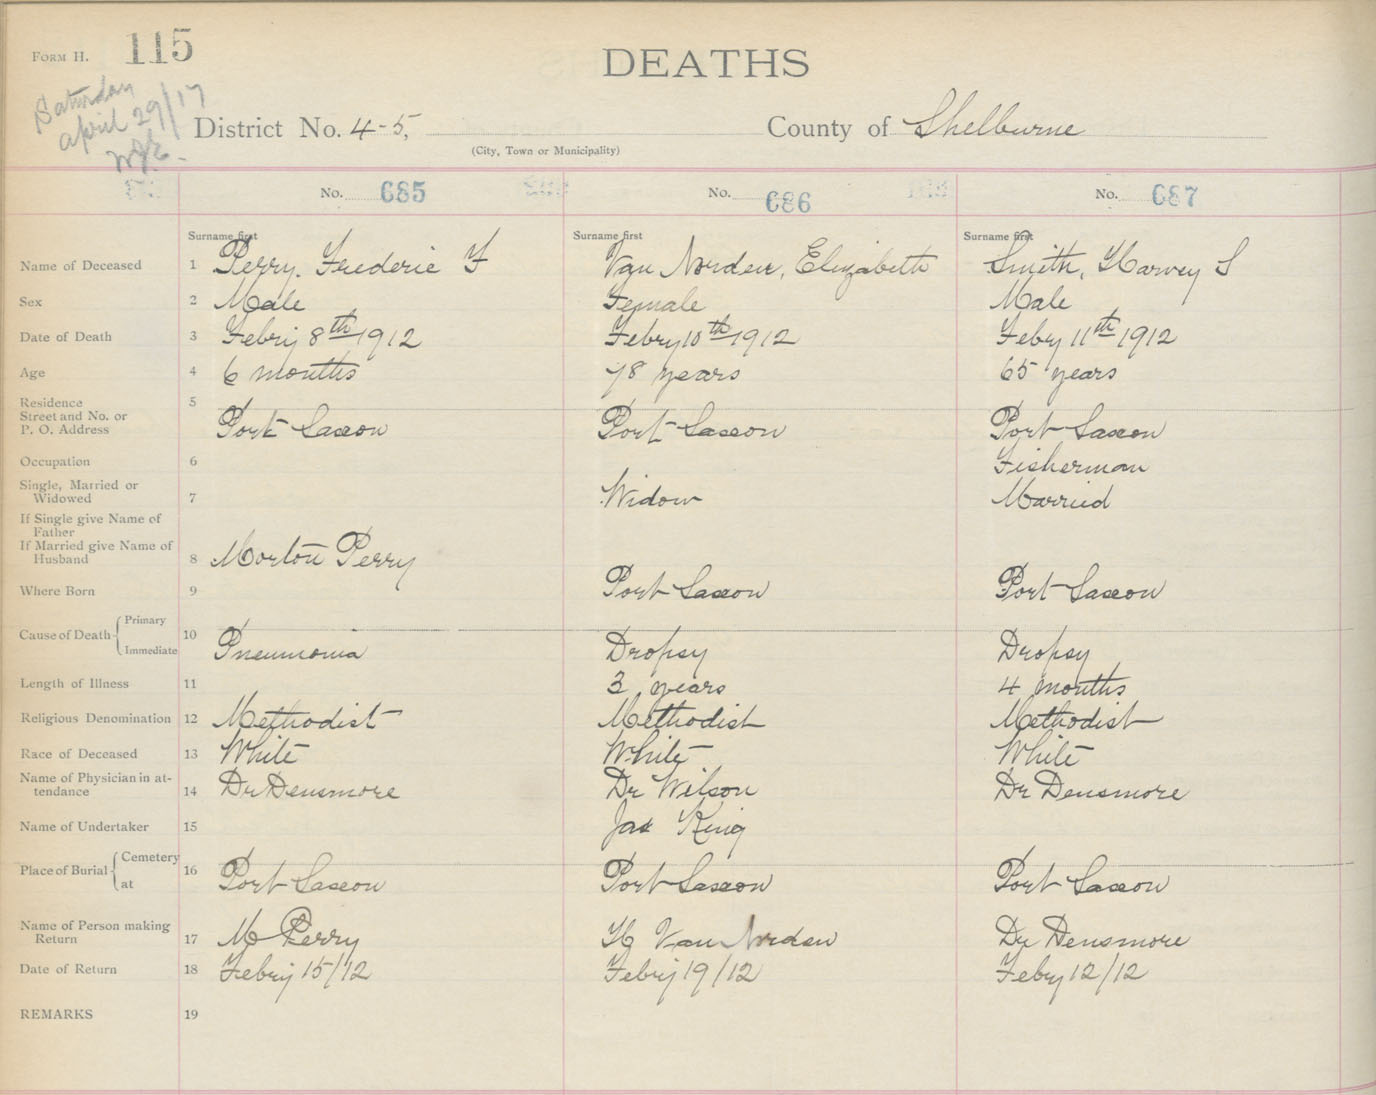 FORM H. 115
DEATHS
Saturday
April 29/17
District No. 4-5, County of Shelburne
(City, Town or Municipality)
No. 685 No. 686 No. 687
Surname first Surname first Surname first
Name of Deceased 1 Perry. Frederic F Van Norden, Elizabeth Smith, Harvey S
Sex 2 Male Female Male
Date of Death 3 Febry 8th 1912 Febry 10th 1912 Febry 11th 1912
Age 4 6 months 78 years 65 years
Residence 5
Street and No. or
P. O. Address Port Saxon Port Saxon Port Saxon
Occupation 6 Fisherman
Single, Married or
Widowed 7 Widow Married
If Single give Name of
Father
If Married give Name of
Husband 8 Morton Perry
Where Born 9 Port Saxon Port Saxon
Cause of Death Primary 10
Immediate Pneumonia Dropsy Dropsy
Length of Illness 11 3 years 4 months
Religious Denomination 12 Methodist Methodist Methodist
Race of Deceased 13 White White White
Name of Physician in at-
tendance 14 Dr Densmore Dr Wilson Dr Densmore
Name of Undertaker 15 Jas King
Place of Burial Cemetery 16
at Port Saxon Port Saxon Port Saxon
Name of Person making
Return 17 M Perry H Van Norden Dr Densmore
Date of Return 18 Febry 15/12 Febry 19/12 Febry 12/12
REMARKS 19